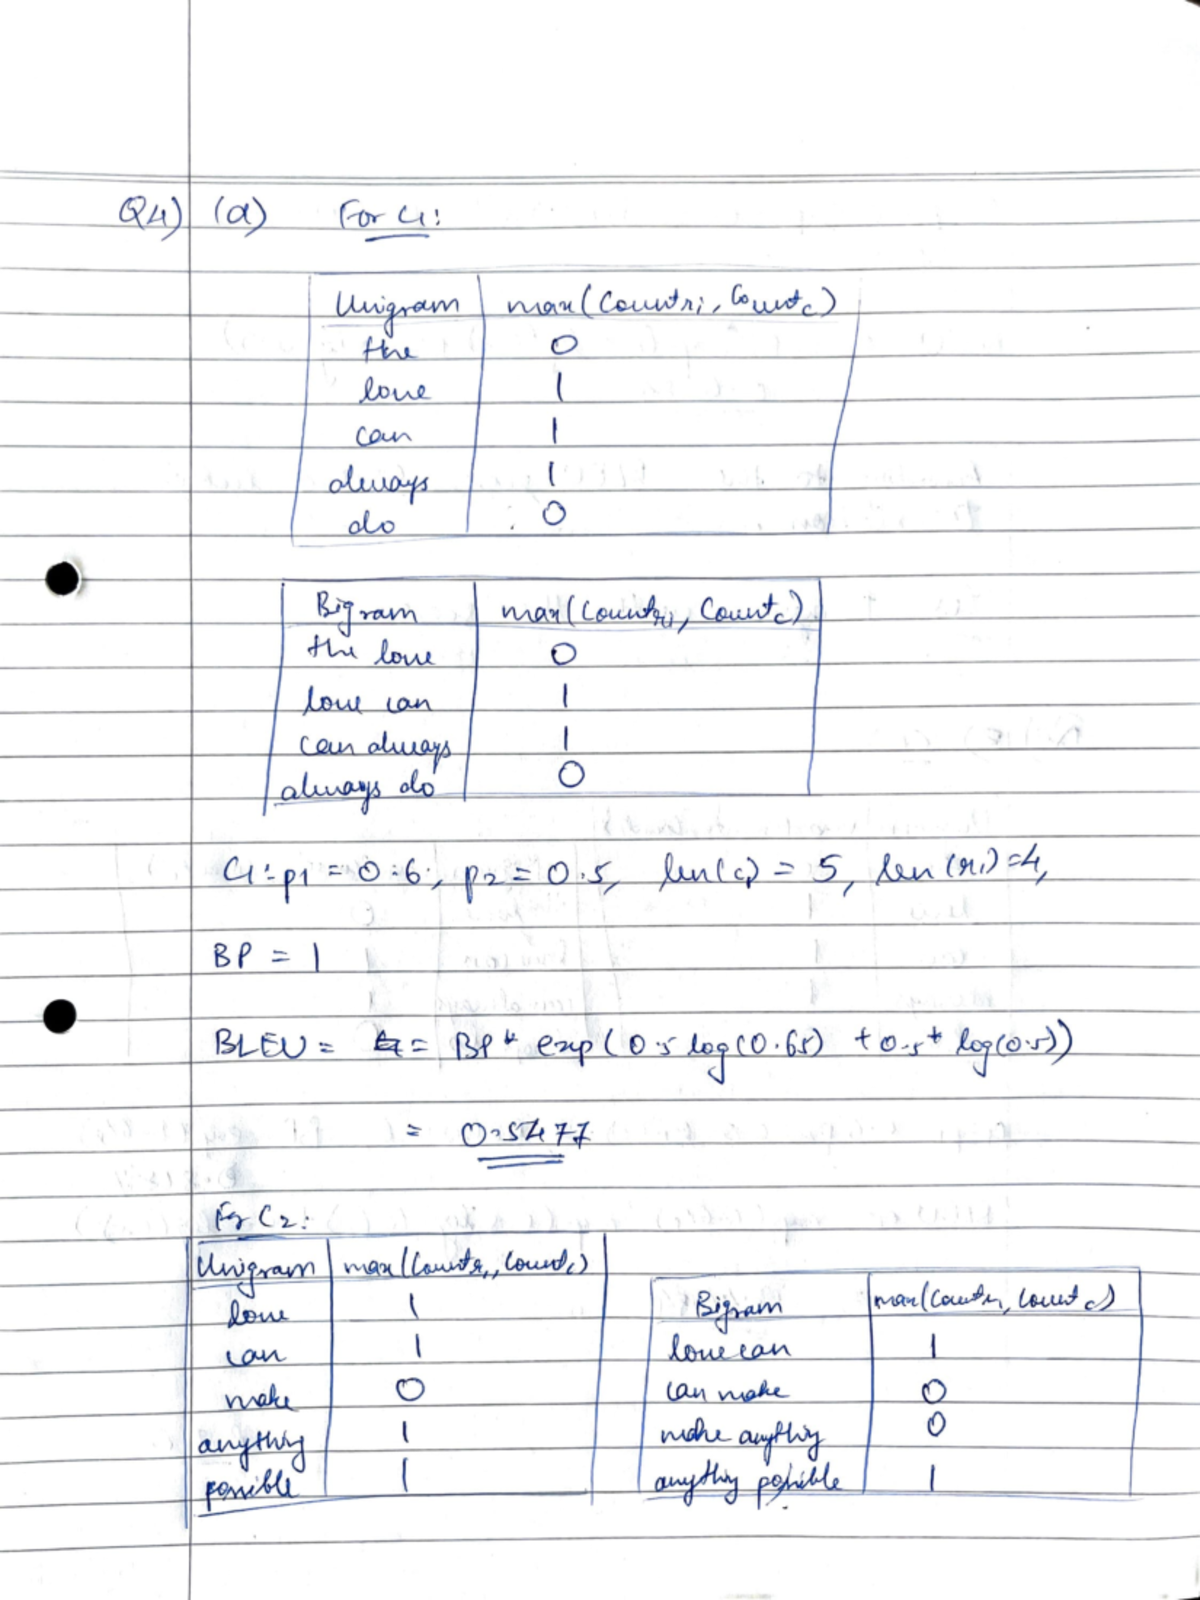 Q4) (a) For C1:
Unigram max(Countri, Countc)
the 0
love 1
can 1
always 1
do 0
Bigram max(Countri, Countc)
the love 0
love can 1
can always 1
always do 0
C1:- p1 = 0.6, p2 = 0.5, len(c) = 5, len(r1) = 4,
BP = 1
BLEU = = BP * exp(0.5 log(0.65) + 0.5 * log(0.5))
= 0.5477
For C2:
Unigram max(Countr1, Countc)
love 1
can 1
make 0
anything 1
possible 1
Bigram max(Countr1, Countc)
love can 1
can make 0
make anything 0
anything possible 1